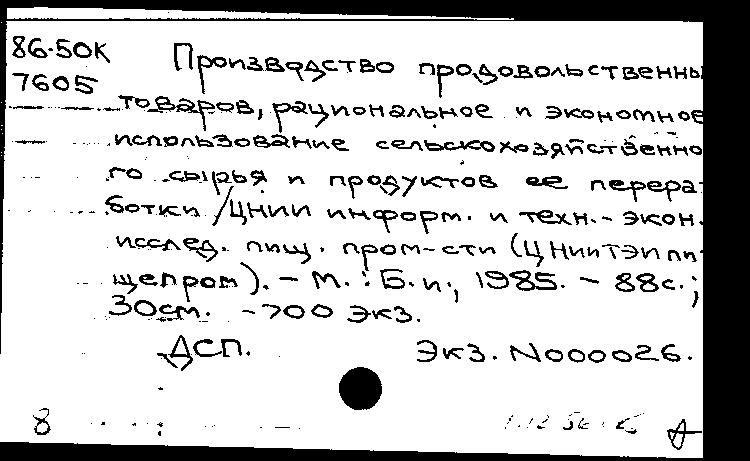 86-50К Производство продовольственны
7605 товаров, рациональное и экономное
использование сельскохозяйственно
го сырья и продуктов ее перера-
ботки /ЦНИИ информ. и техн.-экон.
исслед. пищ. пром-сти (ЦНИИТЭИпи-
щепром). - М. : Б.и., 1985. - 88с.;
30см. - 700 экз.
ДСП. Экз. N000026.
8